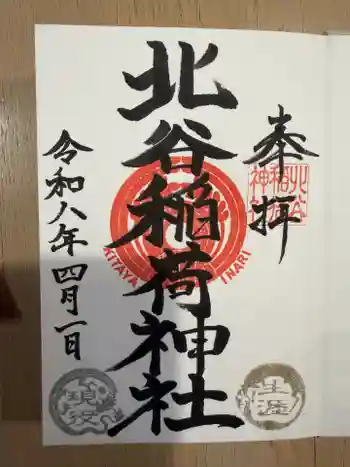 奉拝
北谷稲荷神社
令和八年四月一日
北谷
稲荷
神社
KITAYA INARI
生涯
現役